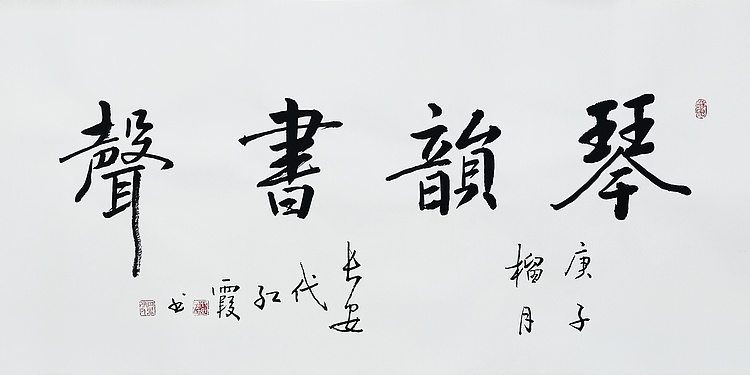 琴韻書聲
庚子
榴月
長安
代紅霞书